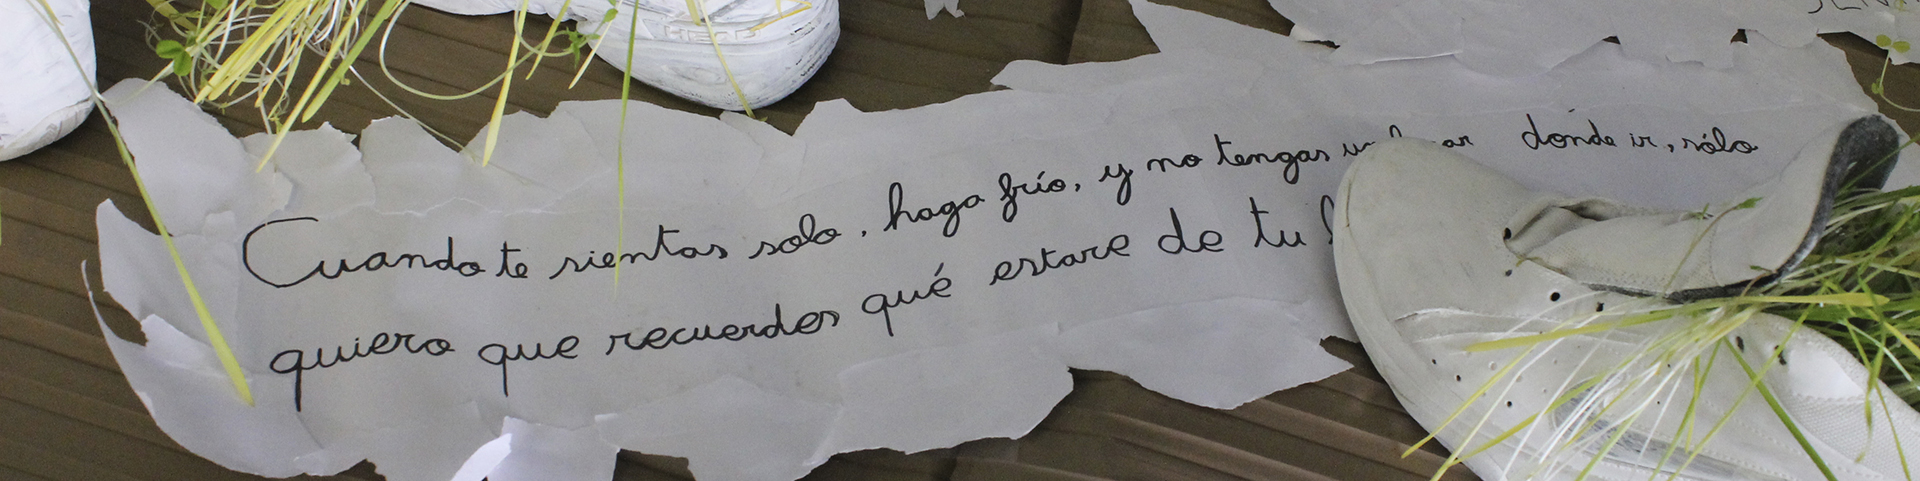 HEAD
Cuando te sientas solo, haga frío, y no tengas donde ir, sólo
quiero que recuerdes qué estare de tu